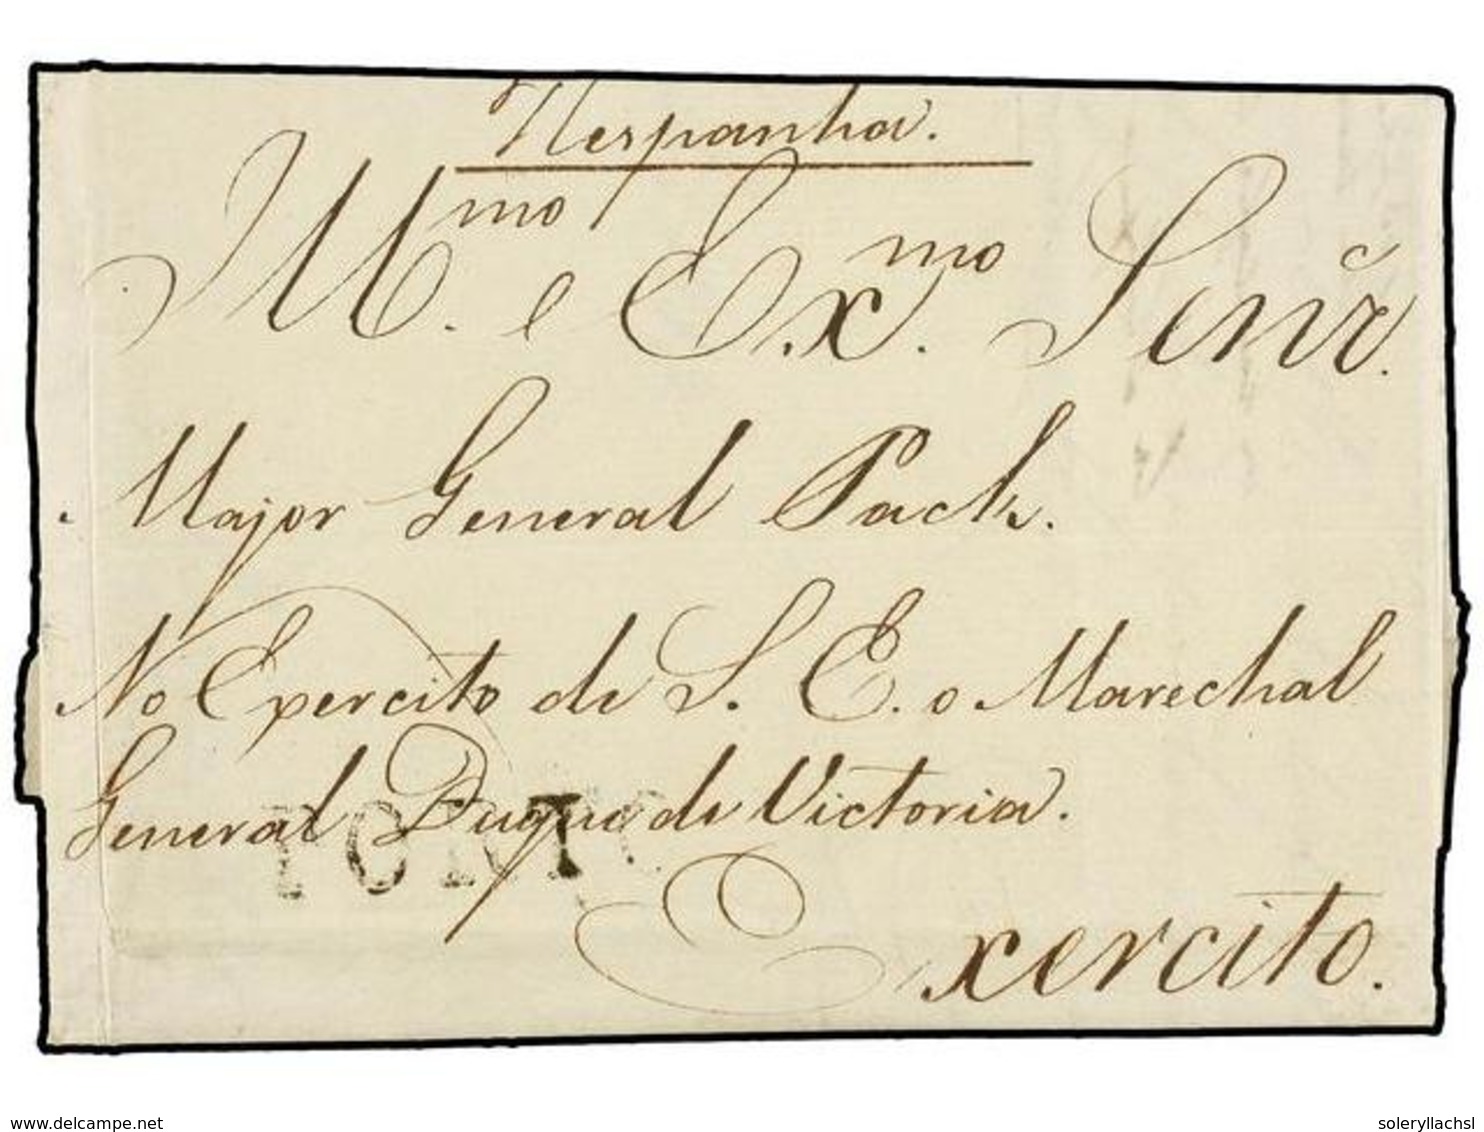 Hespanha.
Illmo. e Exmo. Senr.
Major General Pack.
No Exercito de S. E. o Marechal
General Duque de Victoria.
Exercito.
delcampe.net
soleryllachsl